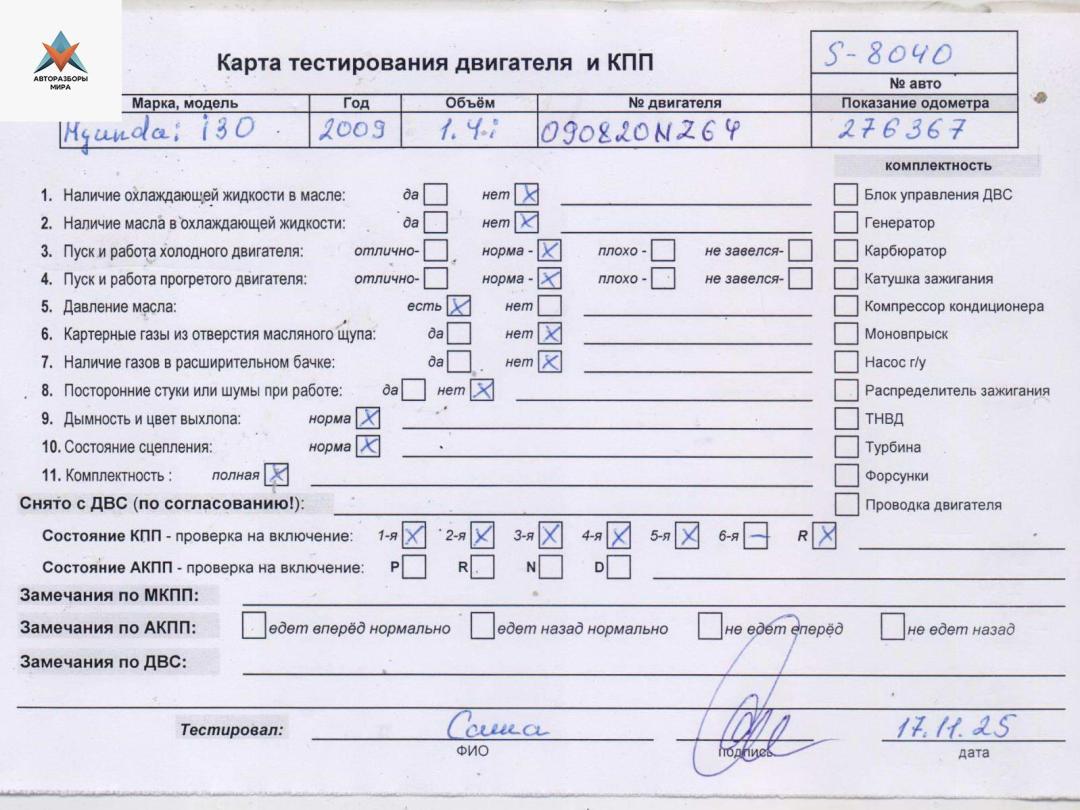 АВТОРАЗБОРЫ
МИРА
Карта тестирования двигателя и КПП
S-8040
№ авто
Марка, модель Год Объём № двигателя Показание одометра
Hyundai i30 2009 1.4i 090820NZ64 276367
комплектность
1. Наличие охлаждающей жидкости в масле: да нет X Блок управления ДВС
2. Наличие масла в охлаждающей жидкости: да нет X Генератор
3. Пуск и работа холодного двигателя: отлично- норма - X плохо - не завелся- Карбюратор
4. Пуск и работа прогретого двигателя: отлично- норма - X плохо - не завелся- Катушка зажигания
5. Давление масла: есть X нет Компрессор кондиционера
6. Картерные газы из отверстия масляного щупа: да нет X Моновпрыск
7. Наличие газов в расширительном бачке: да нет X Насос г/у
8. Посторонние стуки или шумы при работе: да нет X Распределитель зажигания
9. Дымность и цвет выхлопа: норма X ТНВД
10. Состояние сцепления: норма X Турбина
11. Комплектность : полная X Форсунки
Снято с ДВС (по согласованию!): Проводка двигателя
Состояние КПП - проверка на включение: 1-я X 2-я X 3-я X 4-я X 5-я X 6-я – R X
Состояние АКПП - проверка на включение: P R N D
Замечания по МКПП:
Замечания по АКПП: едет вперёд нормально едет назад нормально не едет вперёд не едет назад
Замечания по ДВС:
Тестировал: Саша 17.11.25
ФИО подпись дата